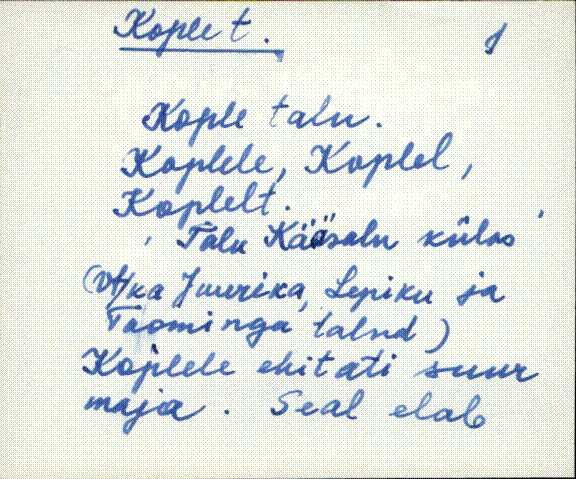 Kople t.
1
Kople talu.
Koplele, Koplel,
Koplelt.
Talu Kääsalu külas
(Vt ka Jmerika, Lepiku ja
Toominga talud)
Koplele ehitati suur
maja. Seal elab